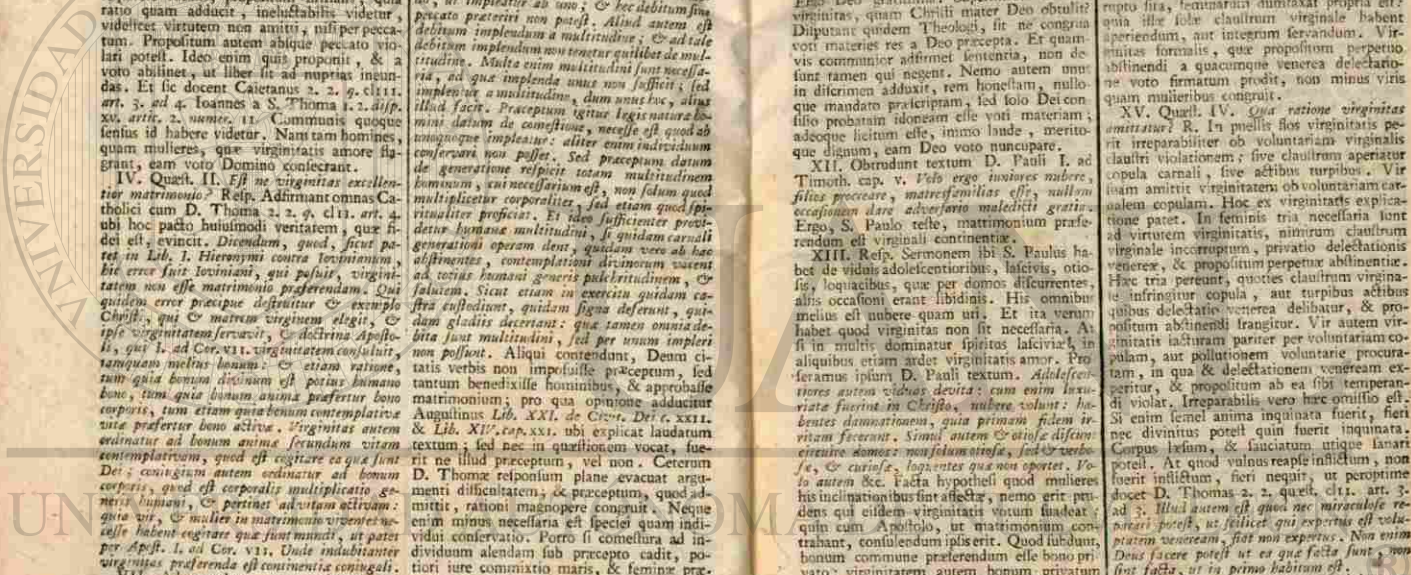 ratio quam adducit, ineluctabilis videtur,
videlicet virtutem non amitti, nisi per pecca-
tum. Propositum autem absque peccato vio-
lari potest. Ideo enim quis proponit, & a
voto abstinet, ut liber sit ad nuptias ineun-
das. Et sic docent Caietanus 2. 2. q. clIII.
art. 3. ad 4. Ioannes a S. Thoma 1. 2. disp.
xv. artic. 2. numer. 11. Communis quoque
sensus id habere videtur. Nam tam homines,
quam mulieres, quæ virginitatis amore fla-
grant, eam voto Domino consecrant.
IV. Quæst. II. Est ne virginitas excellen-
tior matrimonio? Resp. Adfirmant omnas Ca-
tholici cum D. Thoma 2. 2. q. clII. art. 4.
ubi hoc pacto huiusmodi veritatem, quæ fi-
dei est, evincit. Dicendum, quod, sicut pa-
tet in Lib. I. Hieronymi contra Iovinianum,
hic error fuit Ioviniani, qui posuit, virgini-
tatem non esse matrimonio præferendam. Qui
quidem error præcipue destruitur & exemplo
Christi, qui & matrem virginem elegit, &
ipse virginitatem servavit, & doctrina Aposto-
li, qui I. ad Cor. VII. virginitatem consuluit,
tamquam melius bonum: & etiam ratione,
tum quia bonum divinum est potius humano
bono, tum quia bonum animæ præfertur bono
corporis, tum etiam quia bonum contemplativæ
vitæ præfertur bono activæ. Virginitas autem
ordinatur ad bonum animæ secundum vitam
contemplativam, quod est cogitare ea quæ sunt
Dei; coniugium autem ordinatur ad bonum
corporis, quod est corporalis multiplicatio ge-
neris humani, & pertinet ad vitam activam:
quia vir, & mulier in matrimonio viventes ne-
cesse habent cogitare quæ sunt mundi, ut patet
per Apost. I. ad Cor. VII. Unde indubitanter
virginitas præferenda est continentiæ coniugali.
no, ut impleatur ab uno; & hec debitum sine
peccato præteriri non potest. Aliud autem est
debitum implendum a multitudine; & ad tale
debitum implendum non tenetur quilibet de mul-
titudine. Multa enim multitudini sunt necessa-
ria, ad quæ implenda unus non sufficit; sed
implentur a multitudine, dum unus hoc, alius
illud facit. Præceptum igitur legis naturæ ho-
mini datum de comestione, necesse est quod ab
unoquoque impleatur: aliter enim individuum
conservari non posset. Sed præceptum datum
de generatione respicit totam multitudinem
hominum, cui necessarium est, non solum quod
multiplicetur corporaliter, sed etiam quod spi-
ritualiter proficiat. Et ideo sufficienter provi-
detur humanæ multitudini, si quidam carnali
generationi operam dent, quidam vero ab hac
abstinentes, contemplationi divinorum vacent
ad totius humani generis pulchritudinem, &
salutem. Sicut etiam in exercitu quidam ca-
stra custodiunt, quidam signa deferunt, qui-
dam gladiis decertant: quæ tamen omnia de-
bita sunt multitudini, sed per unum impleri
non possunt. Aliqui contendunt, Deum ci-
tatis verbis non imposuisse præceptum, sed
tantum benedixisse hominibus, & approbasse
matrimonium; pro qua opinione adducitur
Augustinus Lib. XXI. de Civit. Dei c. XXII.
& Lib. XIV. cap. XXI. ubi explicat laudatum
textum; sed nec in quæstionem vocat, fue-
rit ne illud præceptum, vel non. Ceterum
D. Thomæ responsum plane evacuat argu-
menti difficultatem; & præceptum, quod ad-
mittit, rationi magnopere congruit. Neque
enim minus necessaria est speciei quam indi-
vidui conservatio. Porro si comestura ad in-
dividuum alendam sub præcepto cadit, po-
tiori iure commixtio maris, & feminæ præ-
virginitas, quam Christi mater Deo obtulit?
Disputant quidem Theologi, sit ne congrua
voti materies res a Deo præcepta. Et quam-
vis communior adfirmet sententia, non de-
sunt tamen qui negent. Nemo autem unus
in discrimen adduxit, rem honestam, nullo-
que mandato præscriptam, sed solo Dei con-
silio probatam idoneam esse voti materiam;
adeoque licitum esse, immo laude, merito-
que dignum, eam Deo voto nuncupare.
XII. Obtrudunt textum D. Pauli I. ad
Timoth. cap. v. Volo ergo iuniores nubere,
filios procreare, matresfamilias esse, nullam
occasionem dare adversario maledicti gratia.
Ergo, S. Paulo teste, matrimonium præfe-
rendum est virginali continentiæ.
XIII. Resp. Sermonem ibi S. Paulus ha-
bet de viduis adolescentioribus, lascivis, otio-
sis, loquacibus, quæ per domos discurrentes,
aliis occasioni erant libidinis. His omnibus
melius est nubere quam uri. Et ita verum
habet quod virginitas non sit necessaria. At
si in multis dominatur spiritus lasciviæ, in
aliquibus etiam ardet virginitatis amor. Pro
feramus ipsum D. Pauli textum. Adolescen-
tiores autem viduas devita: cum enim luxu-
riatæ fuerint in Christo, nubere volunt: ha-
bentes damnationem, quia primam fidem ir-
ritam fecerunt. Simul autem & otiosæ discunt
circuire domos: non solum otiosæ, sed & verbo-
sæ, & curiosæ, loquentes quæ non oportet. Vo-
lo autem &c. Facta hypothesi quod mulieres
his inclinationibus sint affectæ, nemo erit pru-
dens qui eisdem virginitatis votum suadeat;
quin cum Apostolo, ut matrimonium con-
trahant, consulendum ipsis erit. Quod subdunt,
bonum commune præferendum esse bono pri-
vato: virginitatem autem bonum privatum
rupto sita, feminarum dumtaxat propria est?
quia illæ solæ claustrum virginale habent
aperiendum, aut integrum servandum. Vir-
ginitas formalis, quæ propositum perpetuo
abstinendi a quacumque venerea delectatio-
ne voto firmatum prodit, non minus viris
quam mulieribus congruit.
XV. Quæst. IV. Qua ratione virginitas
amittatur? R. In puellis flos virginitatis pe-
rit irreparabiliter ob voluntariam virginalis
claustri violationem; sive claustrum aperiatur
copula carnali, sive actibus turpibus. Vir
suam amittit virginitatem ob voluntariam car-
nalem copulam. Hoc ex virginitatis explica-
tione patet. In feminis tria necessaria sunt
ad virtutem virginitatis, nimirum claustrum
virginale incorruptum, privatio delectationis
venereæ, & propositum perpetuæ abstinentiæ.
Hæc tria pereunt, quoties claustrum virgina-
le infringitur copula, aut turpibus actibus
quibus delectatio venerea delibatur, & pro-
positum abstinendi frangitur. Vir autem vir-
ginitatis iacturam pariter per voluntariam co-
pulam, aut pollutionem voluntarie procura-
tam, in qua & delectationem veneream ex-
peritur, & propositum ab ea sibi temperan-
di violat. Irreparabilis vero hæc omissio est.
Si enim semel anima inquinata fuerit, fieri
nec divinitus potest quin fuerit inquinata.
Corpus læsum, & sauciatum utique sanari
potest. At quod vulnus reapse inflictum, non
fuerit inflictum, fieri nequit, ut peroptime
docet D. Thomas 2. 2. quæst. clII. art. 3.
ad 3. Illud autem est quod nec miraculose re-
parari potest, ut scilicet qui expertus est volu-
ptatem veneream, fiat non expertus. Non enim
Deus facere potest ut ea quæ facta sunt, non
sint facta, ut in primo habitum est.